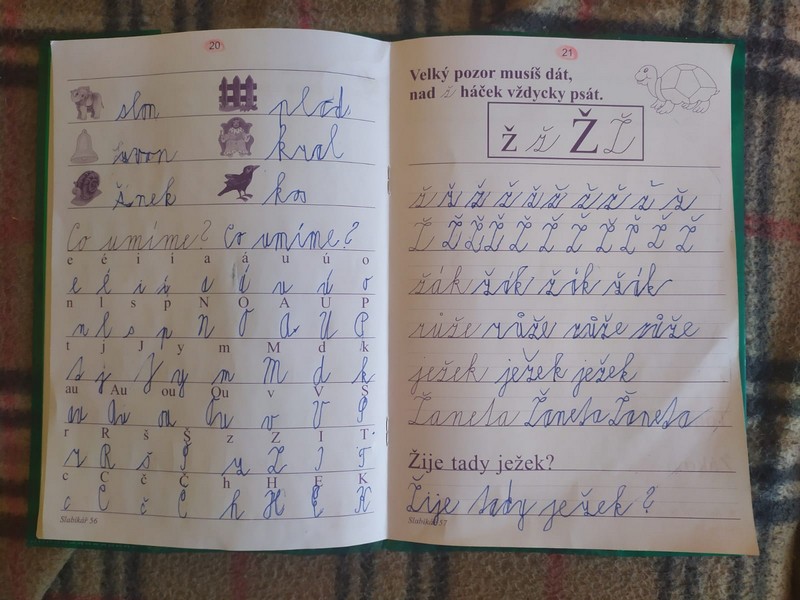 20
slon plod
zvon kral
šnek kos
Co umíme? Co umíme?
e é i í a á u ú o
e é i í a á u ú o
n l s p N O A U P
n l s p N O A U P
t j J y m M d k
t j J y m M d k
au Au ou Qu v V S
au Au ou Qu v V S
r R š Š z Z I T
r R š Š z Z I T
c C č Č h H E K
c C č Č h H E K
Slabikář 56
21
Velký pozor musíš dát,
nad ž háček vždycky psát.
ž ž Ž Ž
ž ž ž ž ž ž ž ž ž ž
Ž Ž Ž Ž Ž Ž Ž Ž Ž Ž Ž
žák žák žák žák
růže růže růže růže
ježek ježek ježek
Žaneta Žaneta Žaneta
Žije tady ježek?
Žije tady ježek?
Slabikář 57